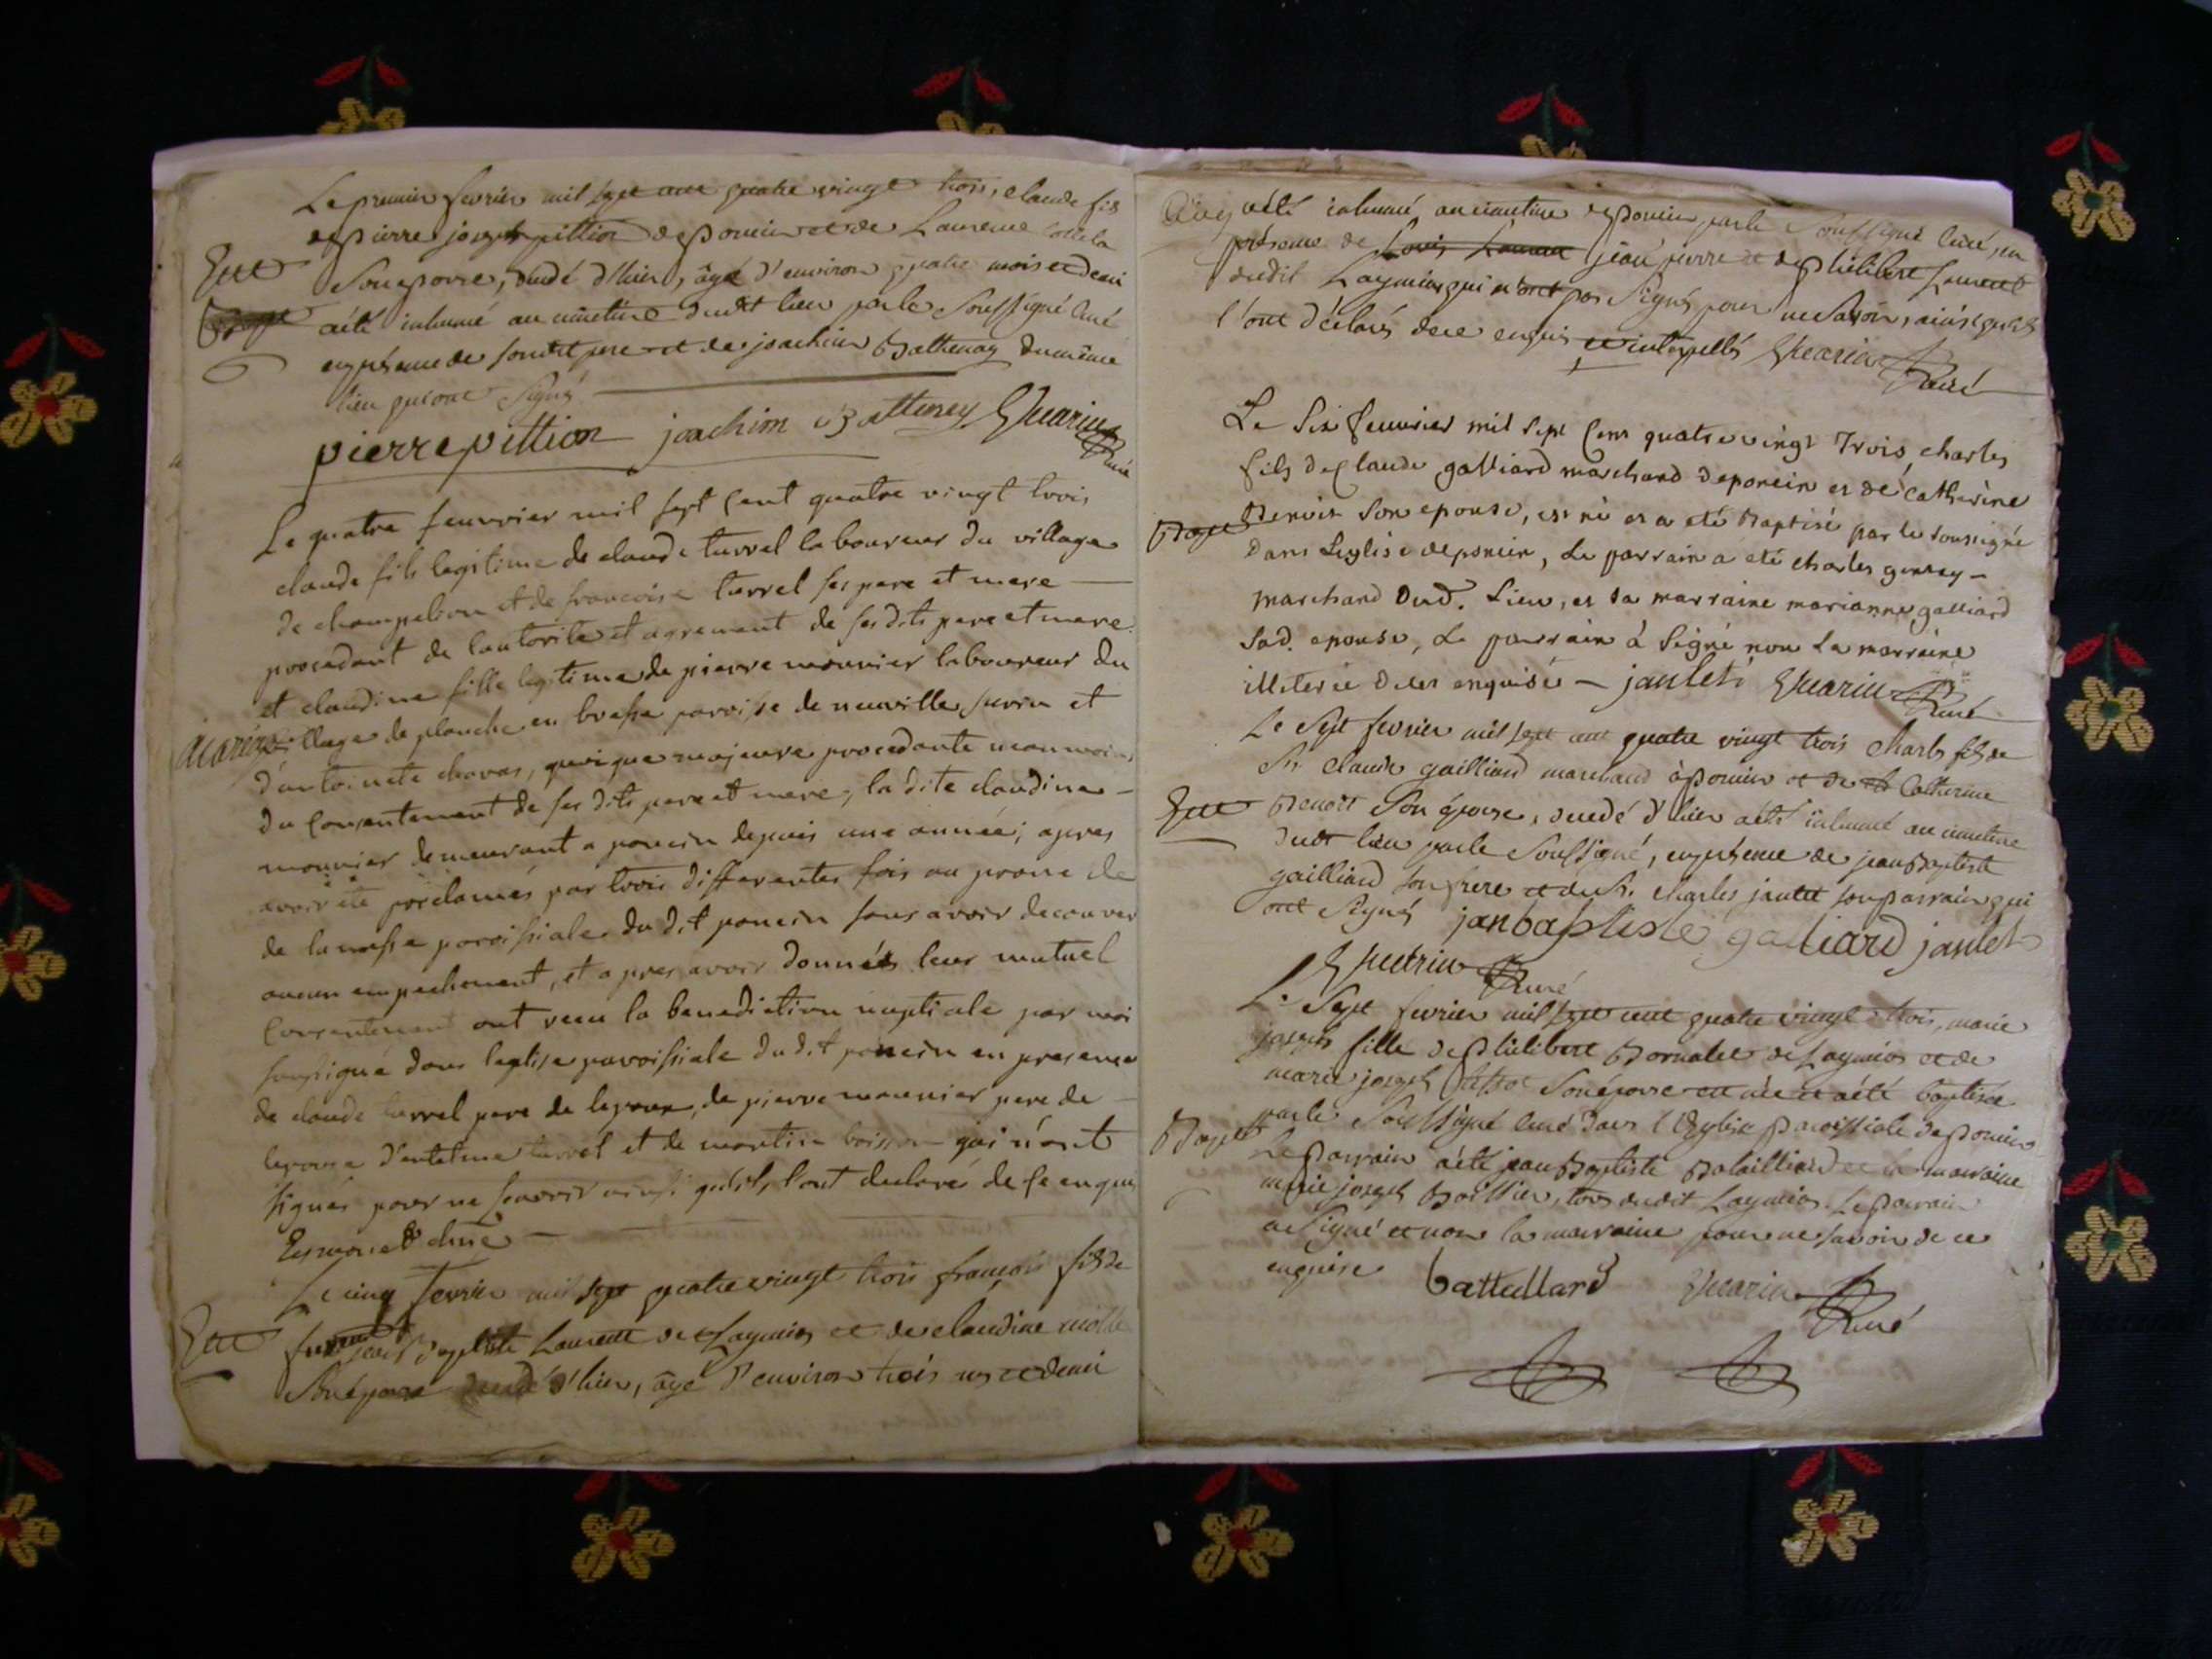 Le premier fevrier mil sept cent quatre vingt trois, claude fils
de pierre joseph pittion de poncin et de Laurence
Son epouse, décédé d'hier, âgé d'environ quatre mois et demi
a été inhumé au cimetiere dudit lieu par le Soussigné Curé
en présence de sondit pere et de joachim Battenay du même
lieu qui ont Signé
pierre pittion joachim Battenay Curé
Le quatre feuvrier mil sept cent quatre vingt trois
claude fils legitime de claude turrel laboureur du village
de champelion et de francoise turrel ses pere et mere
procedant de lautorite et agrement de ses dits pere et mere
et claudine fille legitime de pierre mounier laboureur du
Mariage village de planche en bresse paroisse de neuville surin et
d'antoinete chavas, quoique majeure procedante neanmoins
du consentement de ses dits pere et mere, la dite claudine
mounier demeurant a poncin depuis une année; apres
avoir été proclamés par trois differentes fois au prone de
de la messe paroissiale du dit poncin sans avoir decouvert
aucun empechement, et apres avoir donnés leur mutuel
consentement ont recu la benediction nuptiale par moi
soussigné dans leglise paroissiale du dit poncin en presence
de claude turrel pere de lepoux, de pierre mounier pere de
lepouse d'antelme turrel et de martin boisson qui n'ont
signés pour ne scavoir ainsi quils l'ont declaré de ce enquis
Le cinq fevrier mil sept quatre vingt trois françois fils de
jean Baptiste Laurent de Leymias et de claudine
Son épouse décédé d'hier, âgé d'environ trois ans et demi
a été inhumé au cimetiere de poncin, par le Soussigné Curé, en
présence de Louis Laurent jean pierre et de philibert Laurent
dudit Leymias qui n'ont pas Signés pour ne savoir, ainsi qu'ils
l'ont déclarés de ce enquis et interpellés Curé
Le Six feuvrier mil sept Cens quatre vingt Trois charles
fils de Claude galliard marchand de poncin et de catherine
Bapt Benoit Son epouse, est né et a eté Baptisé par le soussigné
dans Leglise de poncin, Le parrain a eté charles
marchand dud. Lieu, et sa marraine marianne galliard
sad. epouse, Le parrain à Signé non La marraine
illiterée de ce enquisée — jantet Curé
Le Sept fevrier mil sept cent quatre vingt trois Charles fils de
Sr claude gailliard marchand à poncin et de Catherine
Benoit Son épouse, décédé d'hier a été inhumé au cimetiere
dudt lieu par le Soussigné, en présence de jean Baptiste
gailliard son frere et du Sr. charles jantet son parrain qui
ont Signés jan baptiste galliard jantet
Curé
Le Sept fevrier mil sept cent quatre vingt trois, marie
joseph fille de philibert Bornalet de Leymias et de
marie joseph Son épouse est née et a été baptisée
Bapt par le Soussigné Curé dans l'Eglise Paroissiale de Poncin
Le Parrain a été jean Baptiste Batailliard et la marraine
marie joseph, tous dudit Leymias. Le parrain
a Signé et non la marraine pour ne savoir de ce
enquise battallard Curé